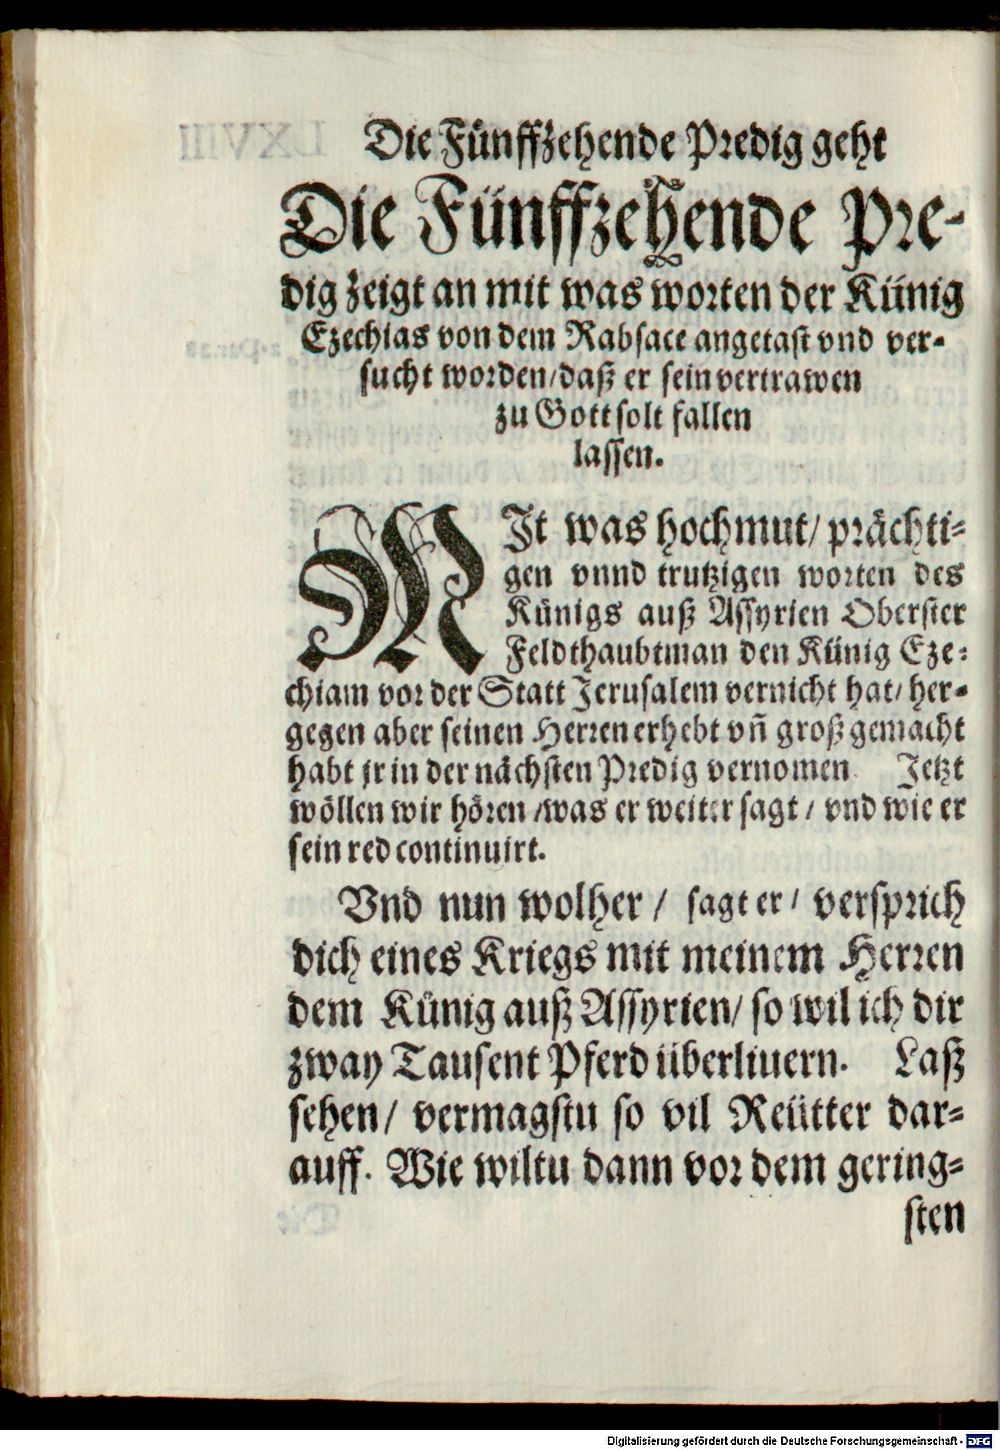 Die Fünffzehende Predig geht
Die Fünffzehende Pre-
dig zeigt an mit was worten der Künig
Ezechias von dem Rabsace angetast vnd ver-
sucht worden/daß er sein vertrawen
zu Gott solt fallen
lassen.
MIt was hochmut/ prächti-
gen vnnd trutzigen worten des
Künigs auß Assyrien Oberster
Feldthaubtman den Künig Eze-
chiam vor der Statt Jerusalem vernicht hat/ her-
gegen aber seinen Herren erhebt vñ groß gemacht
habt jr in der nächsten Predig vernomen Jetzt
wöllen wir hören/was er weiter sagt/ vnd wie er
sein red continuirt.
Vnd nun wolher/ sagt er/ versprich
dich eines Kriegs mit meinem Herren
dem Künig auß Assyrien/ so wil ich dir
zway Tausent Pferd überliuern. Laß
sehen/ vermagstu so vil Reütter dar-
auff. Wie wiltu dann vor dem gering-
sten
Digitalisierung gefördert durch die Deutsche Forschungsgemeinschaft - DFG